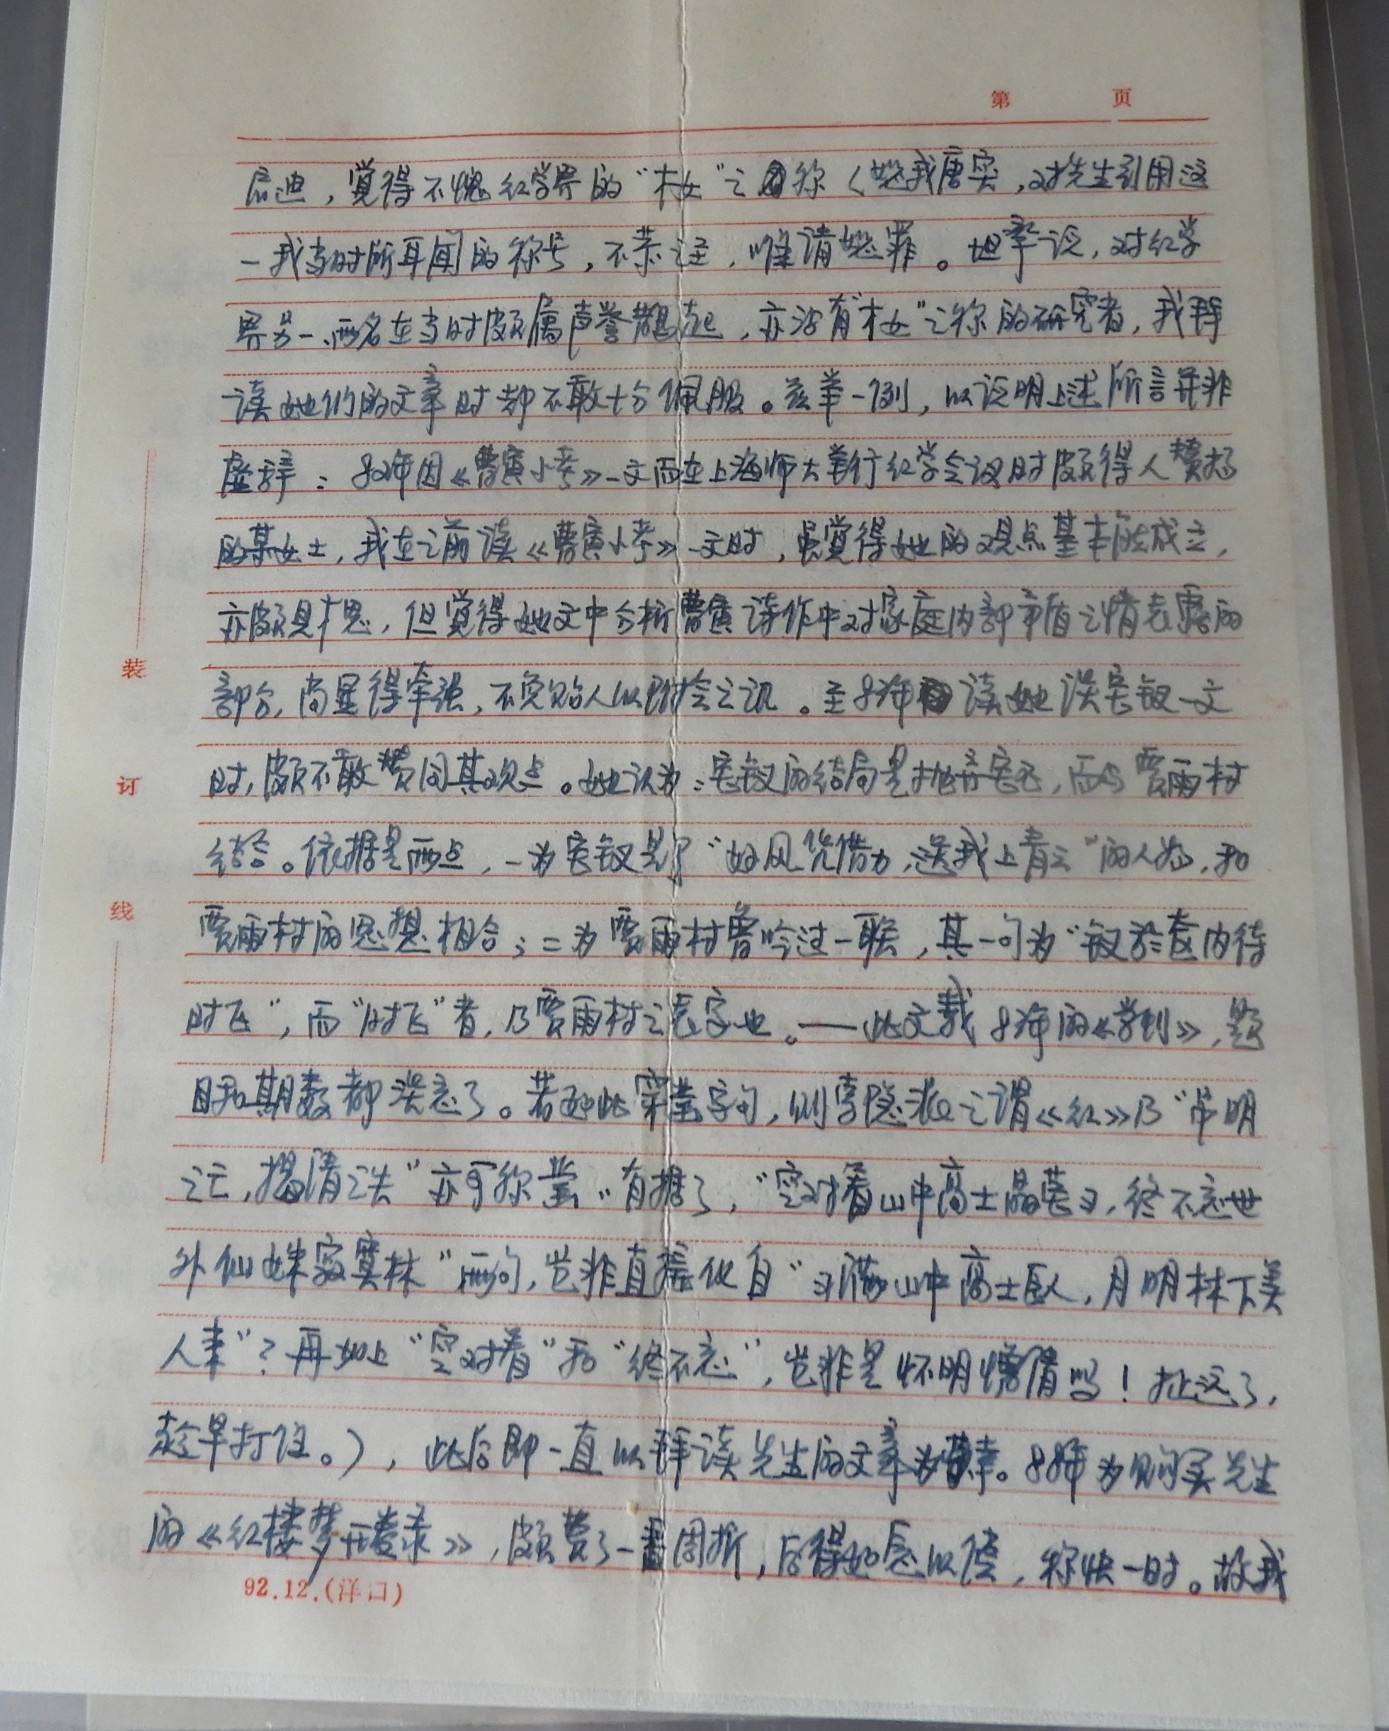 第 页
启迪，觉得不愧红学界的“才女”之称（恕我唐突，对先生引用这
一我当时所耳闻的称号，不恭之至，唯请恕罪。坦率说，对红学
界另一、两名在当时颇属声誉鹊起，亦沾有“才女”之称的研究者，我拜
读她们的文章时都不敢十分佩服。兹举一例，以说明上述所言并非
虚辞：82年因《曹寅小考》一文而在上海师大举行红学会议时颇得人赞扬
的某女士，我在之前读《曹寅小考》一文时，虽觉得她的观点基本能成立，
亦颇具才思，但觉得她文中分析曹寅诗作中对家庭内部矛盾之情表露的
部分，尚显得牵强，不免贻人以附会之讥。至 读她谈宝钗一文
时，颇不敢赞同其观点。她认为：宝钗的结局是抛弃宝玉，而与贾雨村
结合。依据是两点，一为宝钗是个“好风凭借力，送我上青云”的人物，和
贾雨村的思想相合；二为贾雨村曾吟过一联，其一句为“钗于奁内待
时飞”，而“时飞”者，乃贾雨村之表字也。——此文载 的《学刊》，题
目和期数都淡忘了。若如此穿凿字句，则索隐派之谓《红》乃“吊明
之亡，揭清之失”亦可称凿凿有据了，“空对着山中高士晶莹雪，终不忘世
外仙姝寂寞林”两句，岂非直接化自“雪满山中高士卧，月明林下美
人来”？再加上“空对着”和“终不忘”，岂非是怀明憎清吗！扯远了，
趁早打住。），此后即一直以拜读先生的文章为幸。88年为购买先生
的《红楼梦开卷录》，颇费了一番周折，后得如愿以偿，称快一时。故我
装
订
线
92.12.(洋口)